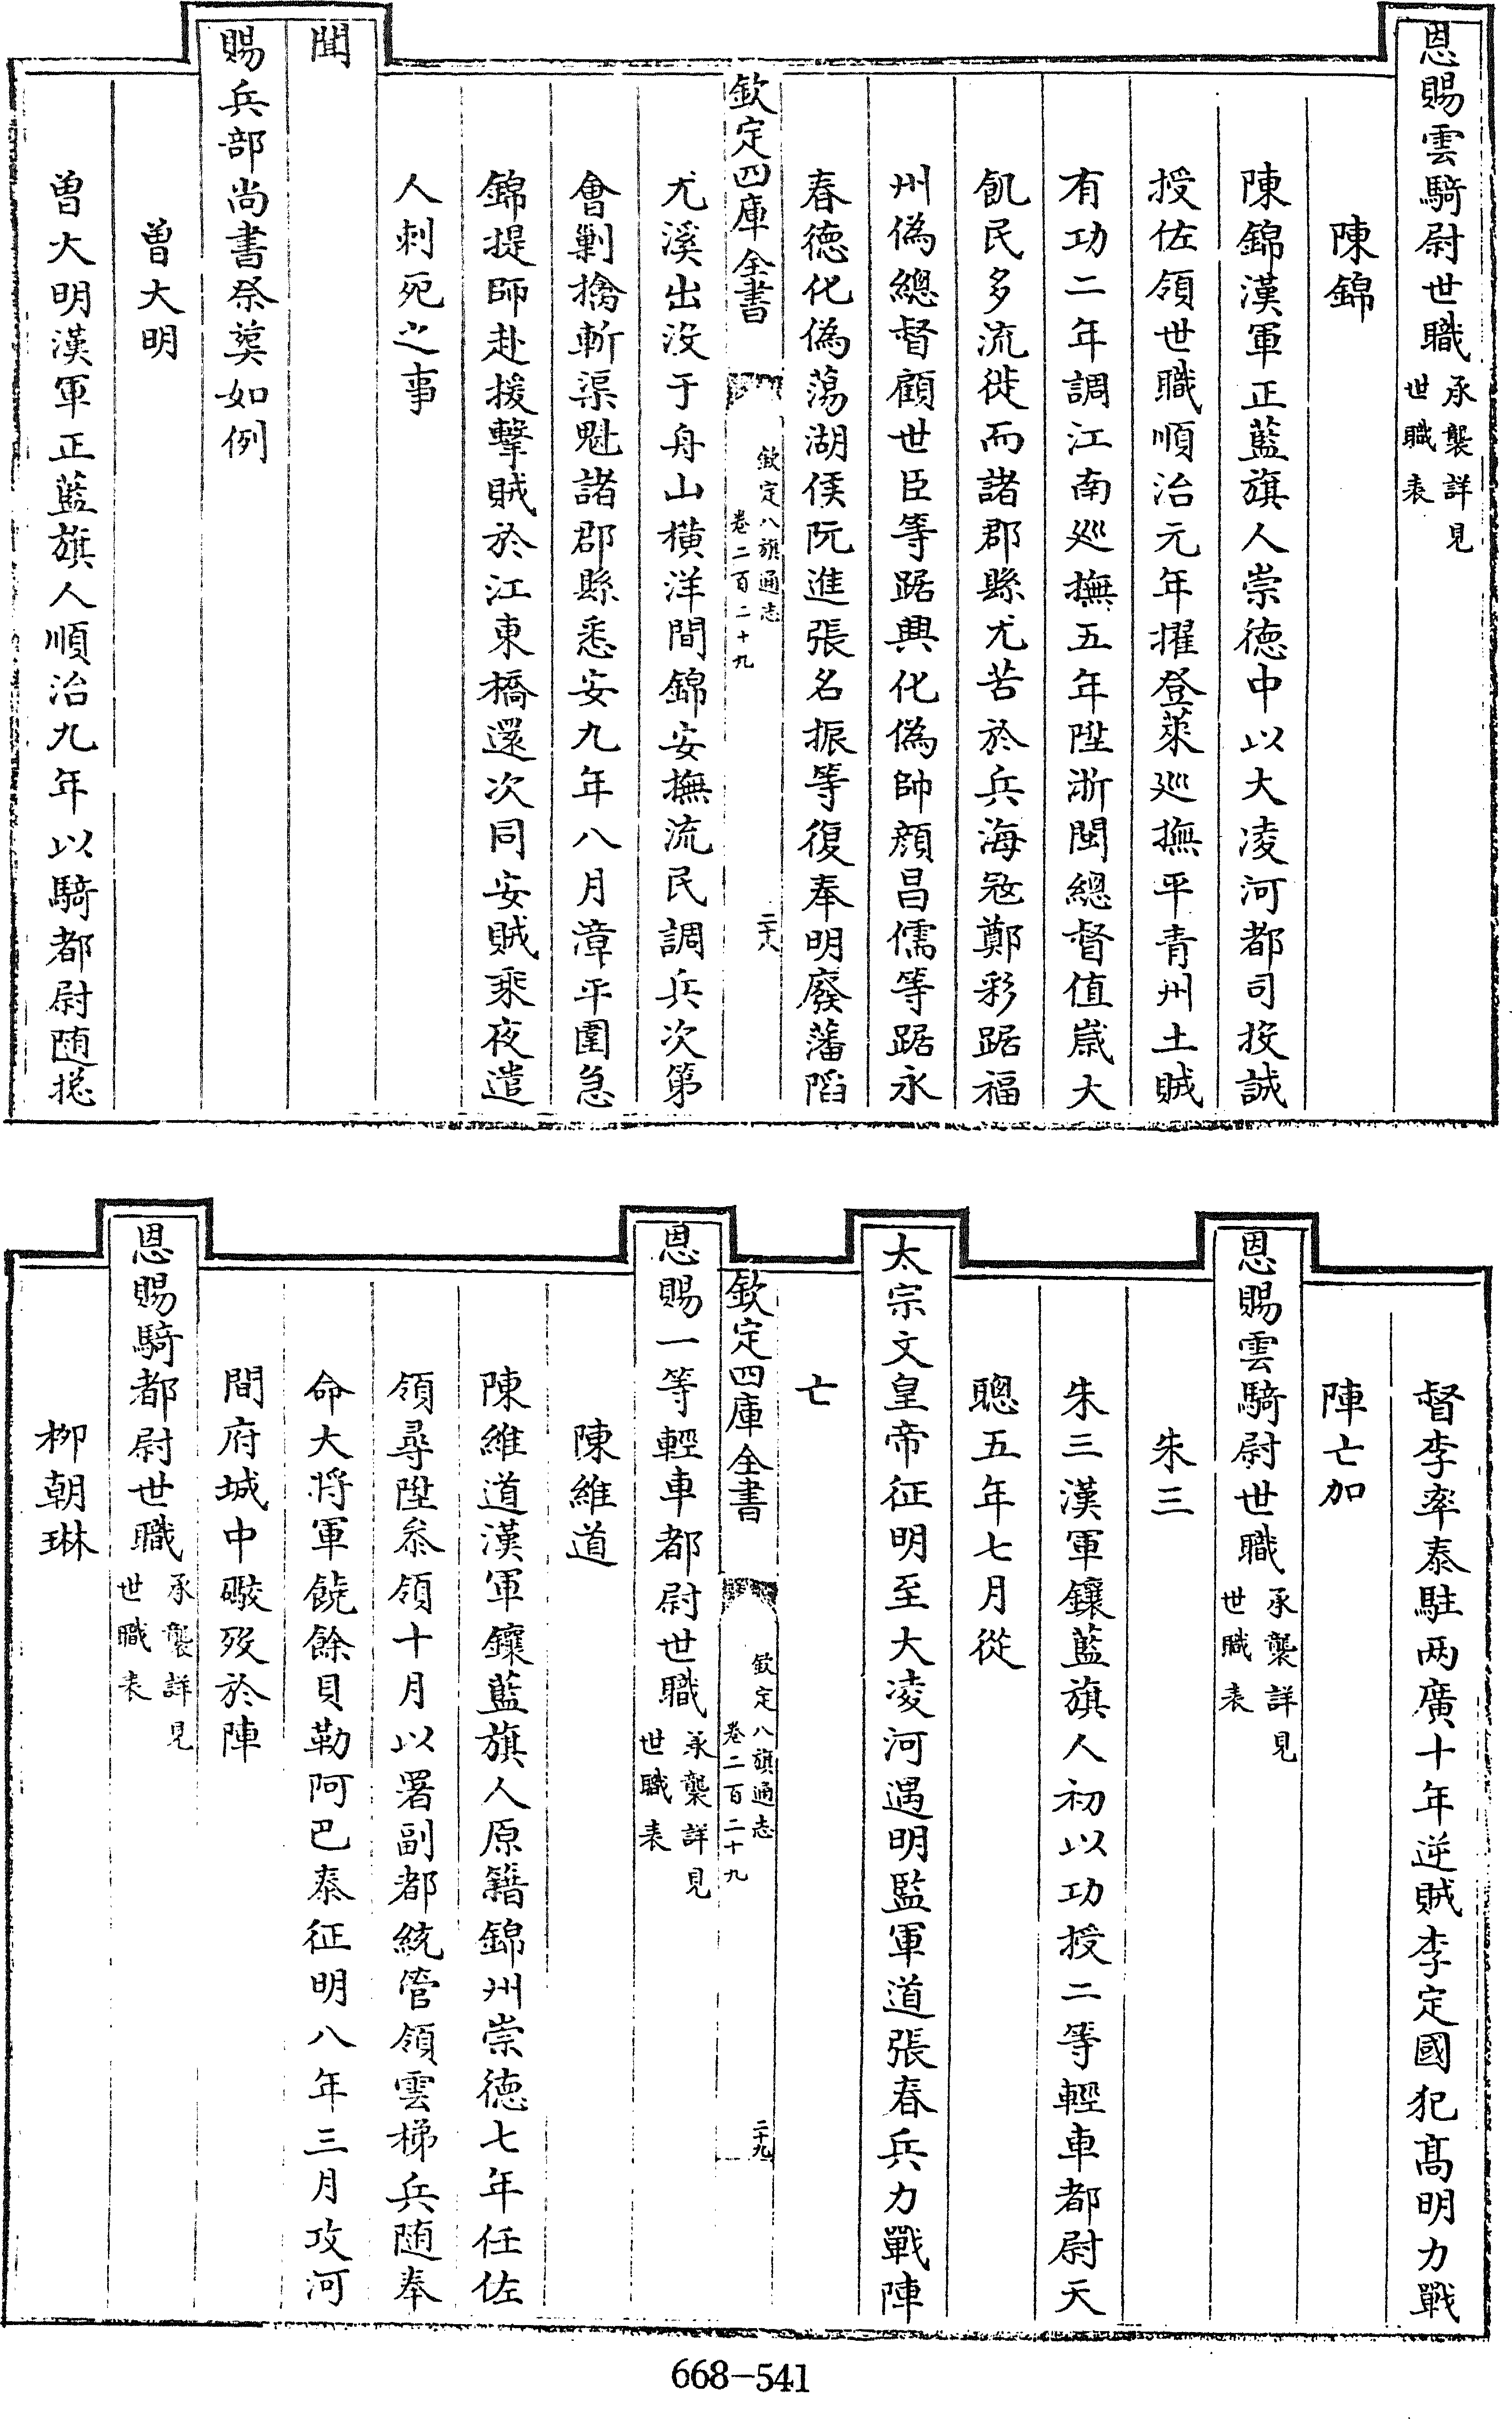 恩賜雲騎尉世職承襲詳見世職表
陳錦
陳錦漢軍正藍旗人崇德中以大凌河都司投誠
授佐領世職順治元年擢登萊廵撫平青州土賊
有功二年調江南廵撫五年陞浙閩總督值嵗大
飢民多流徙而諸郡縣尤苦於兵海冦鄭彩踞福
州偽總督顧世臣等踞興化偽帥顔昌儒等踞永
春德化偽蕩湖侯阮進張名振等復奉明廢藩䧟
欽定四庫全書
欽定八旗通志
卷二百二十九
二十八
尤溪出没于舟山横洋間錦安撫流民調兵次第
會剿擒斬渠魁諸郡縣悉安九年八月漳平圍急
錦提師赴援擊賊於江東橋還次同安賊乘夜遣
人刺死之事
聞
賜兵部尚書祭奠如例
曽大明
曽大明漢軍正藍旗人順治九年以騎都尉随揔
督李率泰駐两廣十年逆賊李定國犯髙明力戰
陣亡加
恩賜雲騎尉世職承襲詳見世職表
朱三
朱三漢軍鑲藍旗人初以功授二等輕車都尉天
聰五年七月從
太宗文皇帝征明至大凌河遇明監軍道張春兵力戰陣
亡
欽定四庫全書
欽定八旗通志
卷二百二十九
二十九
恩賜一等輕車都尉世職承襲詳見世職表
陳維道
陳維道漢軍鑲藍旗人原籍錦州崇德七年任佐
領尋陞叅領十月以署副都統管領雲梯兵随奉
命大将軍饒餘貝勒阿巴泰征明八年三月攻河
間府城中礮歿於陣
恩賜騎都尉世職承襲詳見世職表
柳朝琳
668-541